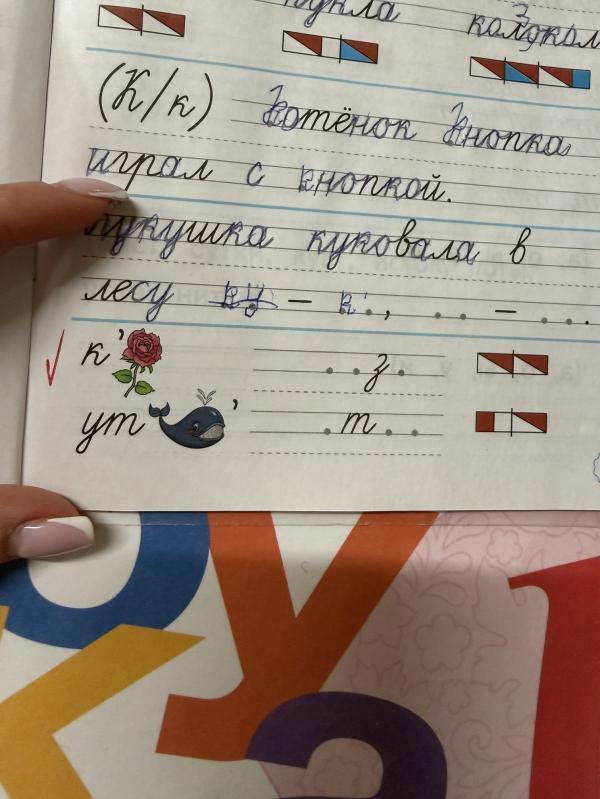 кукла
колокол
(К/к) котёнок Кнопка
играл с кнопкой.
кукушка куковала в
лесу ку – к . . , . . – . . .
к’ . . з .
ут ’ . т . .